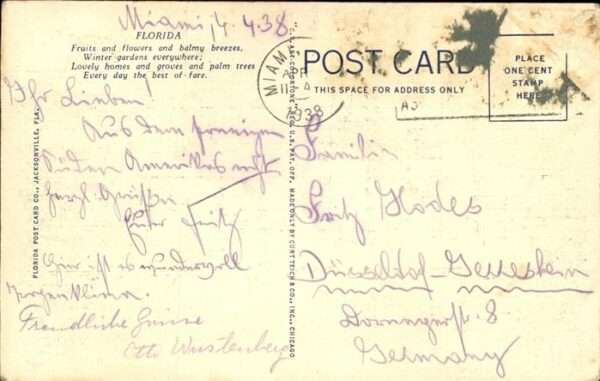 Miami, 4. 4. 38
FLORIDA
Fruits and flowers and balmy breezes,
Winter gardens everywhere;
Lovely homes and groves and palm trees
Every day the best of fare.
Ihr Lieben!
Aus dem sonnigen
Süden Amerikas recht
herzl. Grüße
Euer Fritz
Hier ist es wundervoll
Freundliche Grüsse
Otto Wustenberg
FLORIDA POST CARD CO., JACKSONVILLE, FLA.
"C.T. ART-COLORTONE" REG. U.S. PAT. OFF. MADE ONLY BY CURT TEICH & CO., INC., CHICAGO
MIAMI
APR
4
1938
POST CARD
THIS SPACE FOR ADDRESS ONLY
PLACE
ONE CENT
STAMP
HERE
Familie
Fritz Hodes
Düsseldorf-Gerresheim
8
Germany